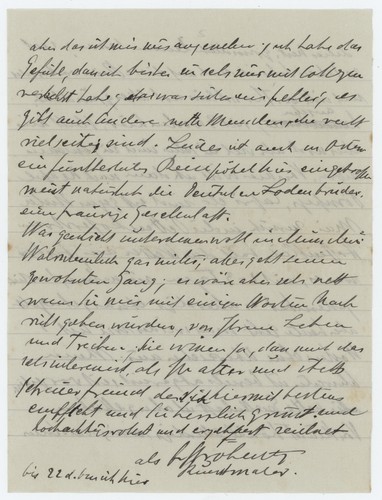 aber das ist mir nur angenehm; ich habe das
Gefühl, dass ich bisher
habe; das war sicher ein Fehler, es
gibt auch andere nette Menschen, die recht
vielseitig sind. Leider ist auch in
ein fürchterliches hier eingetroffen
meist natürlich die Deutschen Lodenbrüder.
eine traurige Gesellschaft.
Was geschieht unterdessen wohl in München?
Wahrscheinlich gar nichts, alles geht seinen
gewohnten Gang; es wäre aber sehr nett
wenn Sie mir mit einigen Worten Nach
richt geben würden, von Ihrem Leben
und Treiben. Sie wissen ja, dass mich das
sehr interessirt, als Ihr alter und stets
getreuer Freund der sich hiermit bestens
empfiehlt und Sie herzlich grüsst und
hochachtungsvollst und ergebenst zeichnet
als
Kunstmaler.
bis 22. d. bin ich hier